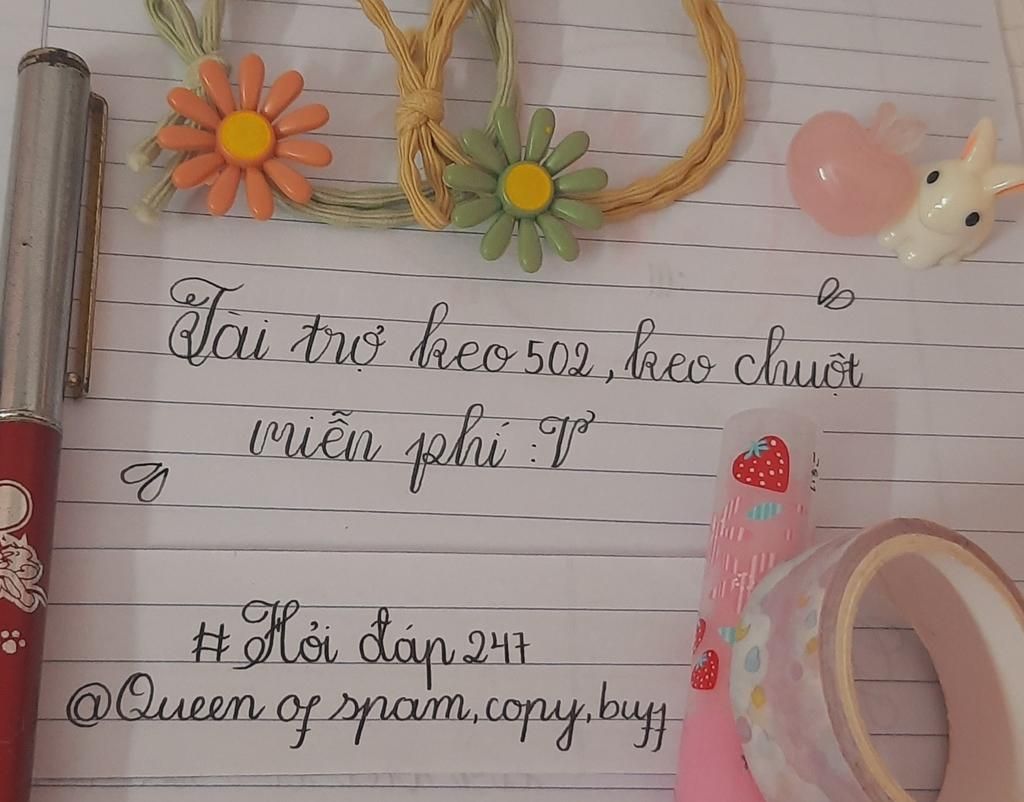 Tài trợ keo 502, keo chuột
miễn phí :V
#Hỏi đáp 247
@Queen of spam, copy, buff